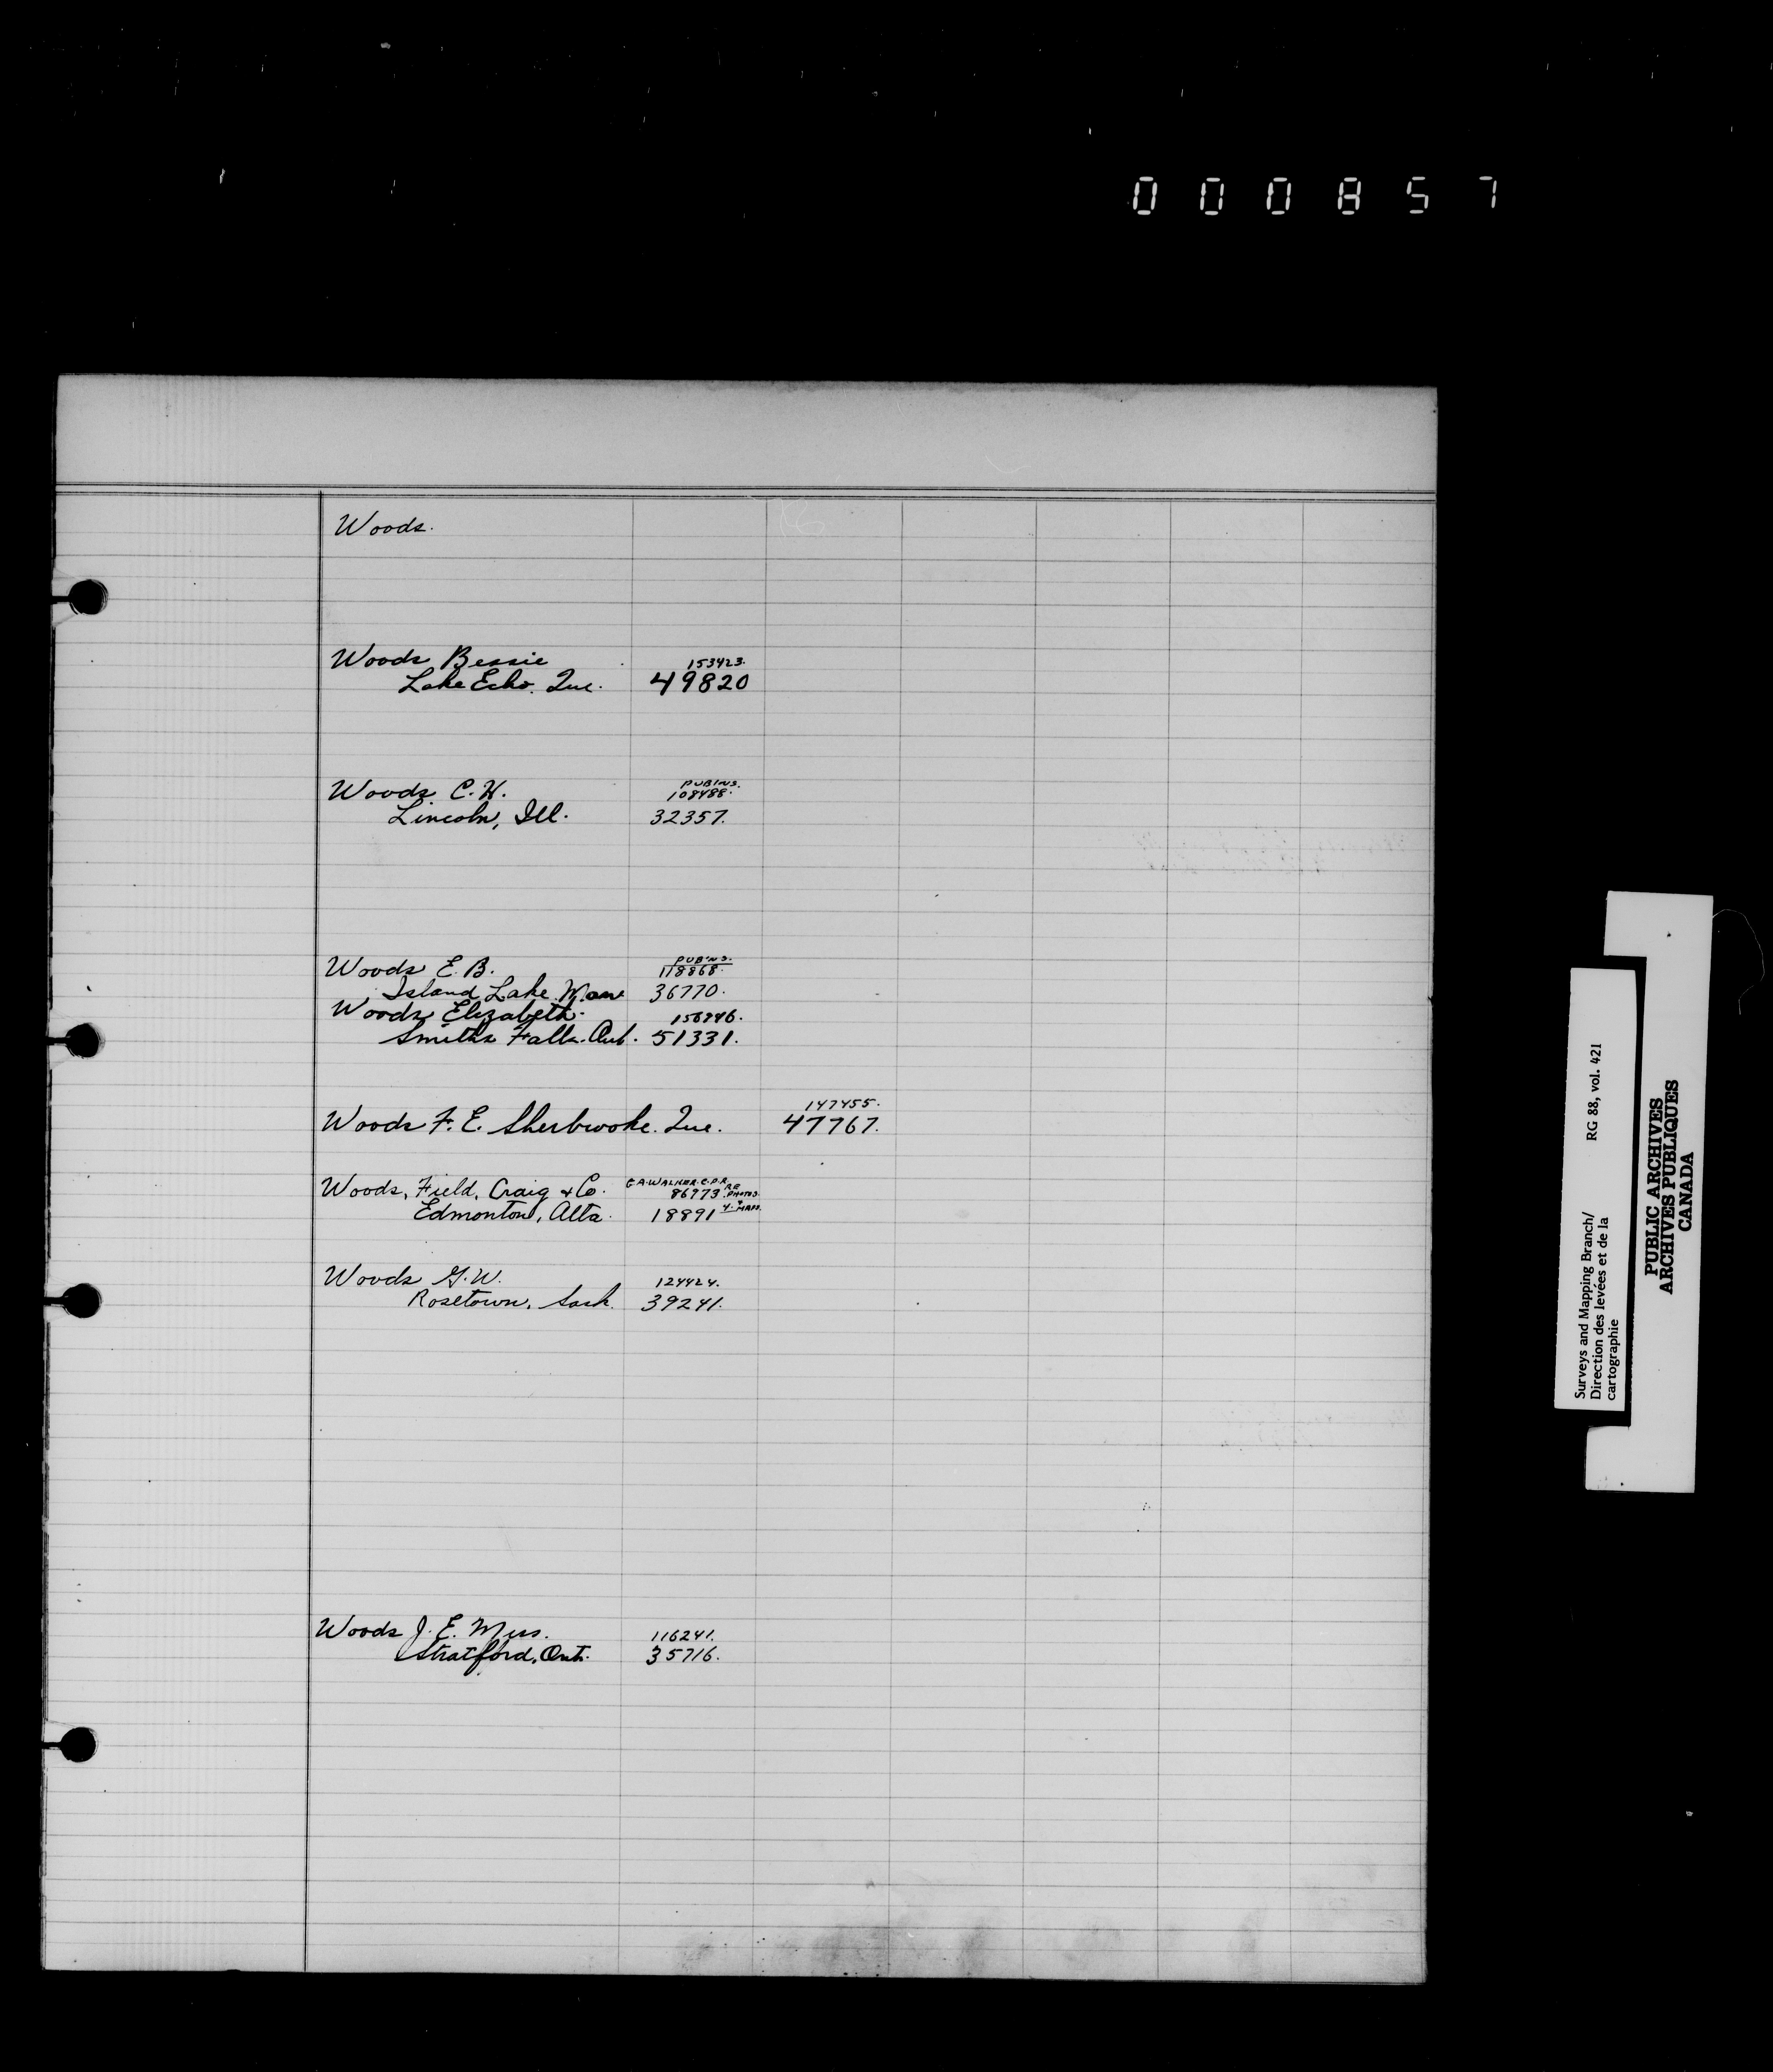 000857
Woods.
Woods Bessie 153423.
Lake Echo. Que. 49820
Woods C. H. PUB'NS.
108488.
Lincoln, Ill. 32357.
Woods E. B. PUB'NS.
118868.
Island Lake. Man 36770.
Woods Elizabeth. 156846.
Smiths Falls. Ont. 51331.
147455.
Woods F. E. Sherbrooke. Que. 47767.
Woods, Field, Craig & Co. G.A. WALKER. C.P.R. RE
86773. PHOTOS.
Edmonton, Alta. 18891 MAPS.
Woods G. W. 124424.
Rosetown, Sask. 39241.
Woods J. E. Miss. 116241.
Stratford, Ont. 35716.
Surveys and Mapping Branch/ RG 88, vol. 421
Direction des levées et de la
cartographie
PUBLIC ARCHIVES
ARCHIVES PUBLIQUES
CANADA